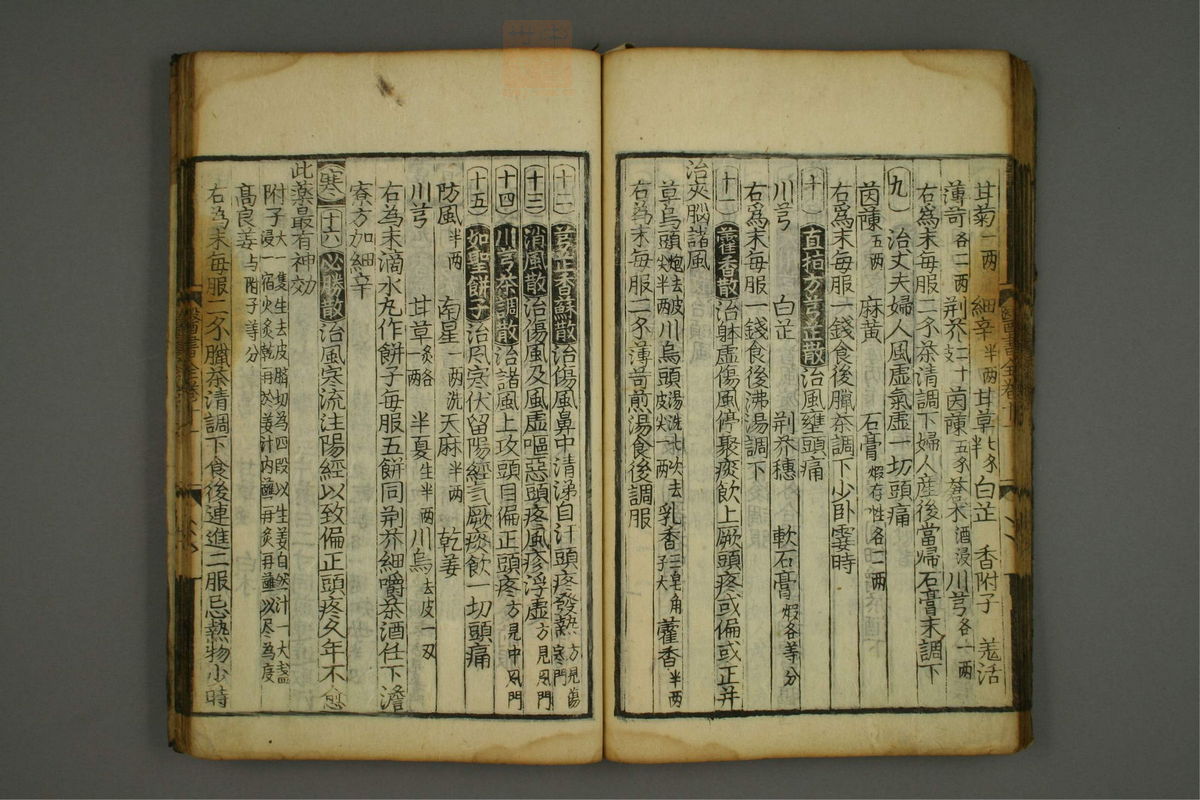 甘菊一两 細辛半两 甘草七个半 白芷 香附子 羗活
薄苛各二两 荆芥二十支 茵蔯五个 蒼术酒浸 川芎各一两
右爲末每服二个茶清調下婦人産後當歸石膏末調下
九 治丈夫婦人風虚氣虚一切頭痛
茵蔯五两 麻黄 石膏煆存性各二两
右爲末每服一錢食後臘茶調下少卧霎時
十 直指方芎芷散治風壅頭痛
川芎 白芷 荆芥穗 軟石膏煆各等分
右爲末每服一錢食後沸湯調下
十一 藿香散治躰虚傷風停聚痰飲上厥頭疼或偏或正并
治夾腦諸風
草烏頭炮去皮尖半两 川烏頭湯洗七次去皮尖一两 乳香三皂角子大 藿香半两
右为末每服二个薄苛煎湯食後調服
十二 芎芷香蘇散治傷風鼻中清涕自汗頭疼發熱方見傷寒門
十三 消風散治傷風及風虚嘔惡頭疼風疹浮虚方見風門
十四 川芎茶調散治諸風上攻頭目偏正頭疼方見中風門
十五 如聖餅子治风寒伏留陽經氣厥痰飲一切頭痛
防風半两 南星一两洗 天麻半两 乾姜
川芎 甘草炙各一两 半夏生半两 川烏去皮一两
右為末滴水丸作餅子每服五餅同荆芥細嚼茶酒任下澹
寮方加細辛
寒 十六 必勝散治風寒流注陽經以致偏正頭疼久年不愈
此藥最有神効
附子大一隻生去皮臍切為四叚以生姜自然汁一大盞浸一宿火炙乾再於姜汁内蘸再炙再蘸以尽為度
高良姜与附子等分
右為末每服二个臘茶清調下食後連進二服忌熱物少時